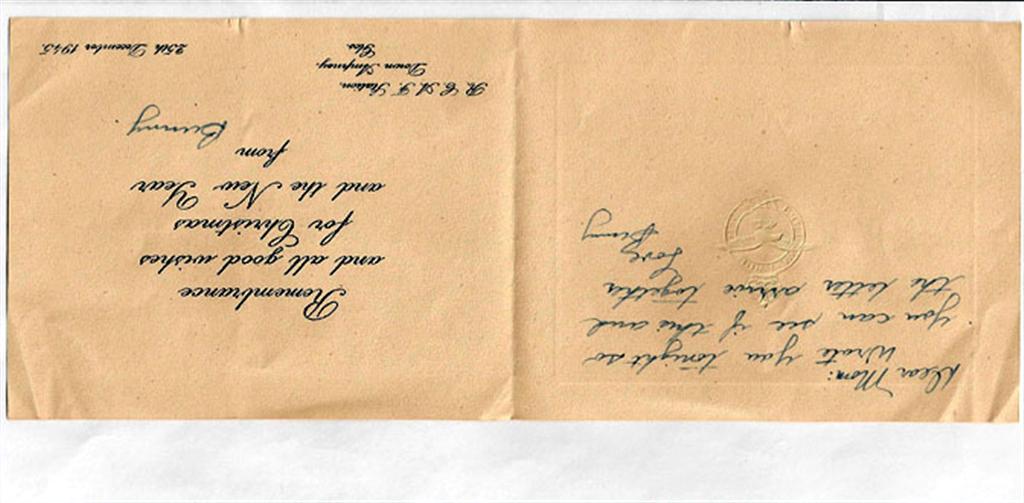 Dear Mom:
Wrote you tonight so
you can see if this and
the letter arrive together
Love
Bunny
Remembrance
and all good wishes
for Christmas
and the New Year
from
Bunny
R. C. A. F. Station,
Down Ampney,
Glos.
25th December 1945.